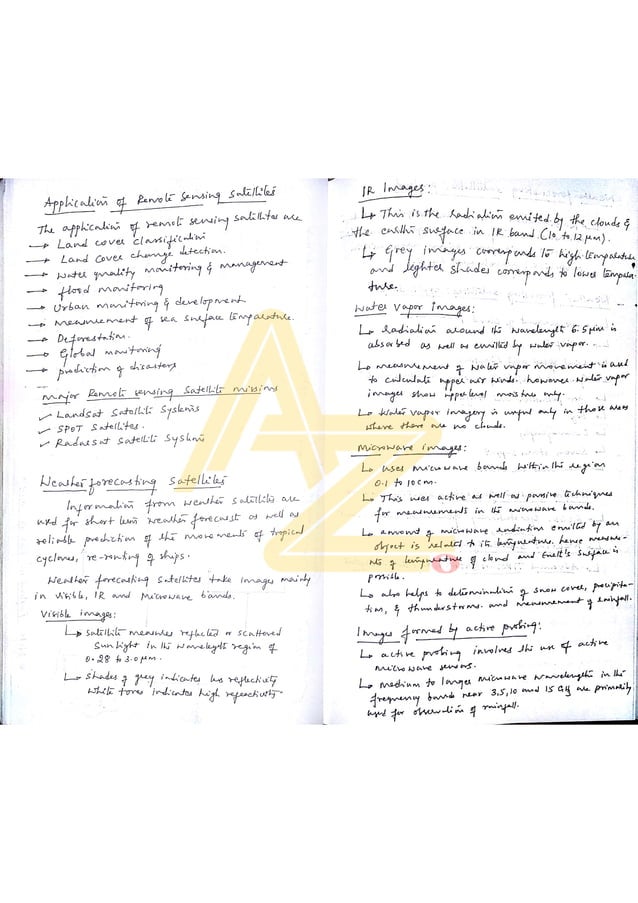 Application of Remote Sensing Satellites
The application of remote sensing satellites are
→ Land cover classification
→ Land cover change detection.
→ water quality monitoring & management
→ flood monitoring
→ Urban monitoring & development
→ measurement of sea surface temperature.
→ Deforestation.
→ Global monitoring
→ prediction of disasters
major Remote sensing Satellite missions
✓ Landsat Satellite Systems
✓ SPOT Satellites.
✓ Radarsat Satellite System
Weather forecasting Satellites
Information from weather satellites are
used for short term weather forecast as well as
reliable prediction of the movements of tropical
cyclones, re-routing of ships.
Weather forecasting satellites take images mainly
in visible, IR and Microwave bands.
Visible images:
↳ satellite measures reflected or scattered
Sunlight in the wavelength region of
0.28 to 3.0 µm.
↳ shades of grey indicates less reflectivity
White tones indicates high reflectivity
IR Images:
↳ This is the Radiation emitted by the clouds &
the earth's surface in IR band (10 to 12 µm).
↳ Grey images corresponds to high temperature
and lighter shades corresponds to lower tempera-
ture.
Water Vapor Images:
↳ Radiation around the wavelength 6.5 µm is
absorbed as well as emitted by water vapor.
↳ measurement of Water vapor movement is used
to calculate upper air winds. however water vapor
images show upper level moisture only.
↳ Water vapor imagery is useful only in those areas
where there are no clouds.
Microwave images:
↳ uses microwave bands within the region
0.1 to 10 cm.
↳ This uses active as well as passive techniques
for measurements in the microwave bands.
↳ amount of microwave radiation emitted by an
object is related to its temperature. hence measure-
nts of temperature of cloud and Earth's surface is
possible.
↳ also helps to determination of snow cover, precipita-
tion, & thunderstorms. and measurement of rainfall.
Images formed by active probing:
↳ active probing involves the use of active
microwave sensors.
↳ medium to longer microwave wavelengths in the
frequency bands near 3, 5, 10 and 15 GHz are primarily
used for observation of rainfall.
AZ